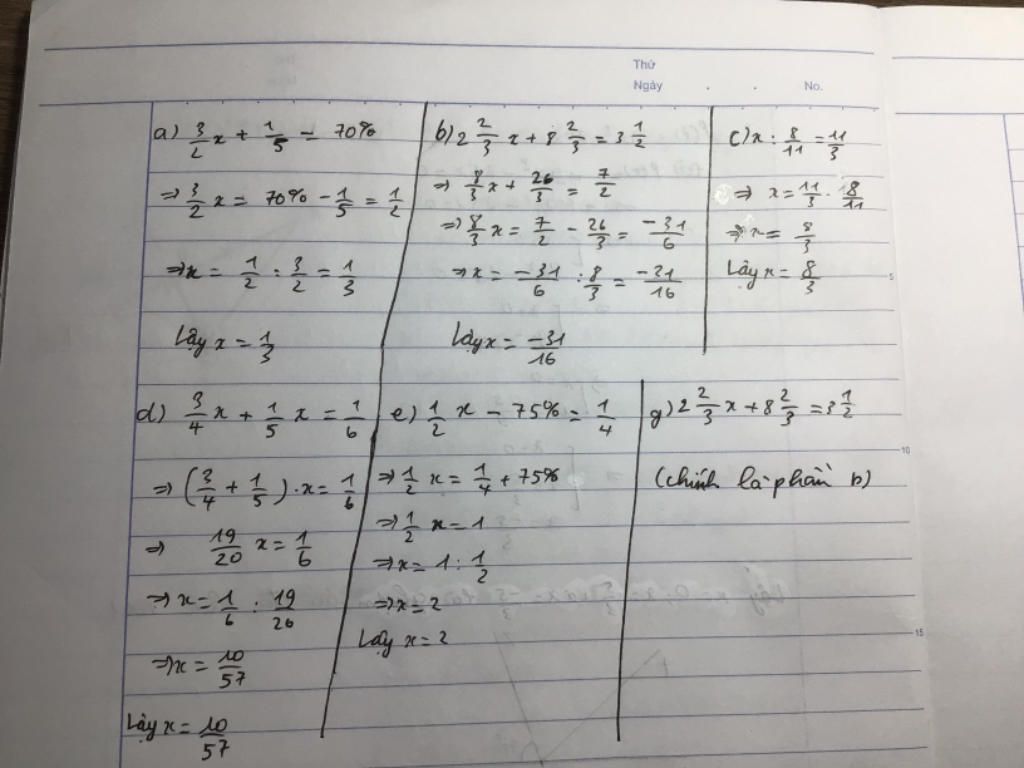 Thứ
Ngày . . No.
a) 3/2 x + 1/5 = 70%
⇒ 3/2 x = 70% - 1/5 = 1/2
⇒ x = 1/2 : 3/2 = 1/3
Vậy x = 1/3
b) 2 2/3 x + 8 2/3 = 3 1/2
⇒ 8/3 x + 26/3 = 7/2
⇒ 8/3 x = 7/2 - 26/3 = -31/6
⇒ x = -31/6 : 8/3 = -21/16
Vậy x = -31/16
c) x : 8/11 = 11/3
⇒ x = 11/3 . 8/11
⇒ x = 8/3
Vậy x = 8/3
5
d) 3/4 x + 1/5 x = 1/6
⇒ (3/4 + 1/5) . x = 1/6
⇒ 19/20 x = 1/6
⇒ x = 1/6 : 19/20
⇒ x = 10/57
Vậy x = 10/57
e) 1/2 x - 75% = 1/4
⇒ 1/2 x = 1/4 + 75%
⇒ 1/2 x = 1
⇒ x = 1 : 1/2
⇒ x = 2
Vậy x = 2
g) 2 2/3 x + 8 2/3 = 3 1/2
(chính là phần b)
10
15